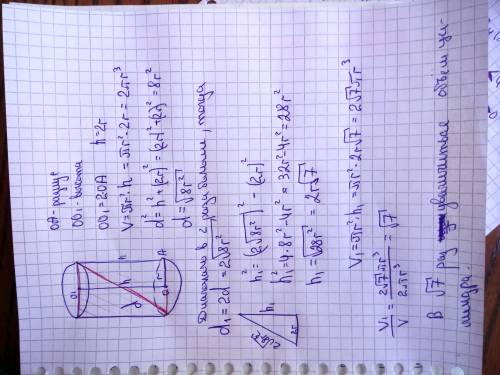 OA - радиус
OO₁ - высота
OO₁ = 2OA h = 2r
V = πr²·h = πr²·2r = 2πr³
d² = h² + (2r)² = (2r)² + (2r)² = 8r²
d = √8r²
O₁
h
h
d
r
O
A
Диагональ в 2 раза больше, тогда
d₁ = 2d = 2√8r²
h₁² = (2√8r²)² - (2r)²
h₁² = 4·8r² - 4r² = 32r² - 4r² = 28r²
h₁ = √28r² = 2r√7
2√8r²
h₁
2r
V₁ = πr²·h₁ = πr²·2r√7 = 2√7πr³
V₁/V = 2√7πr³/2πr³ = √7
В √7 раз увеличиться объём ци-
линдра.